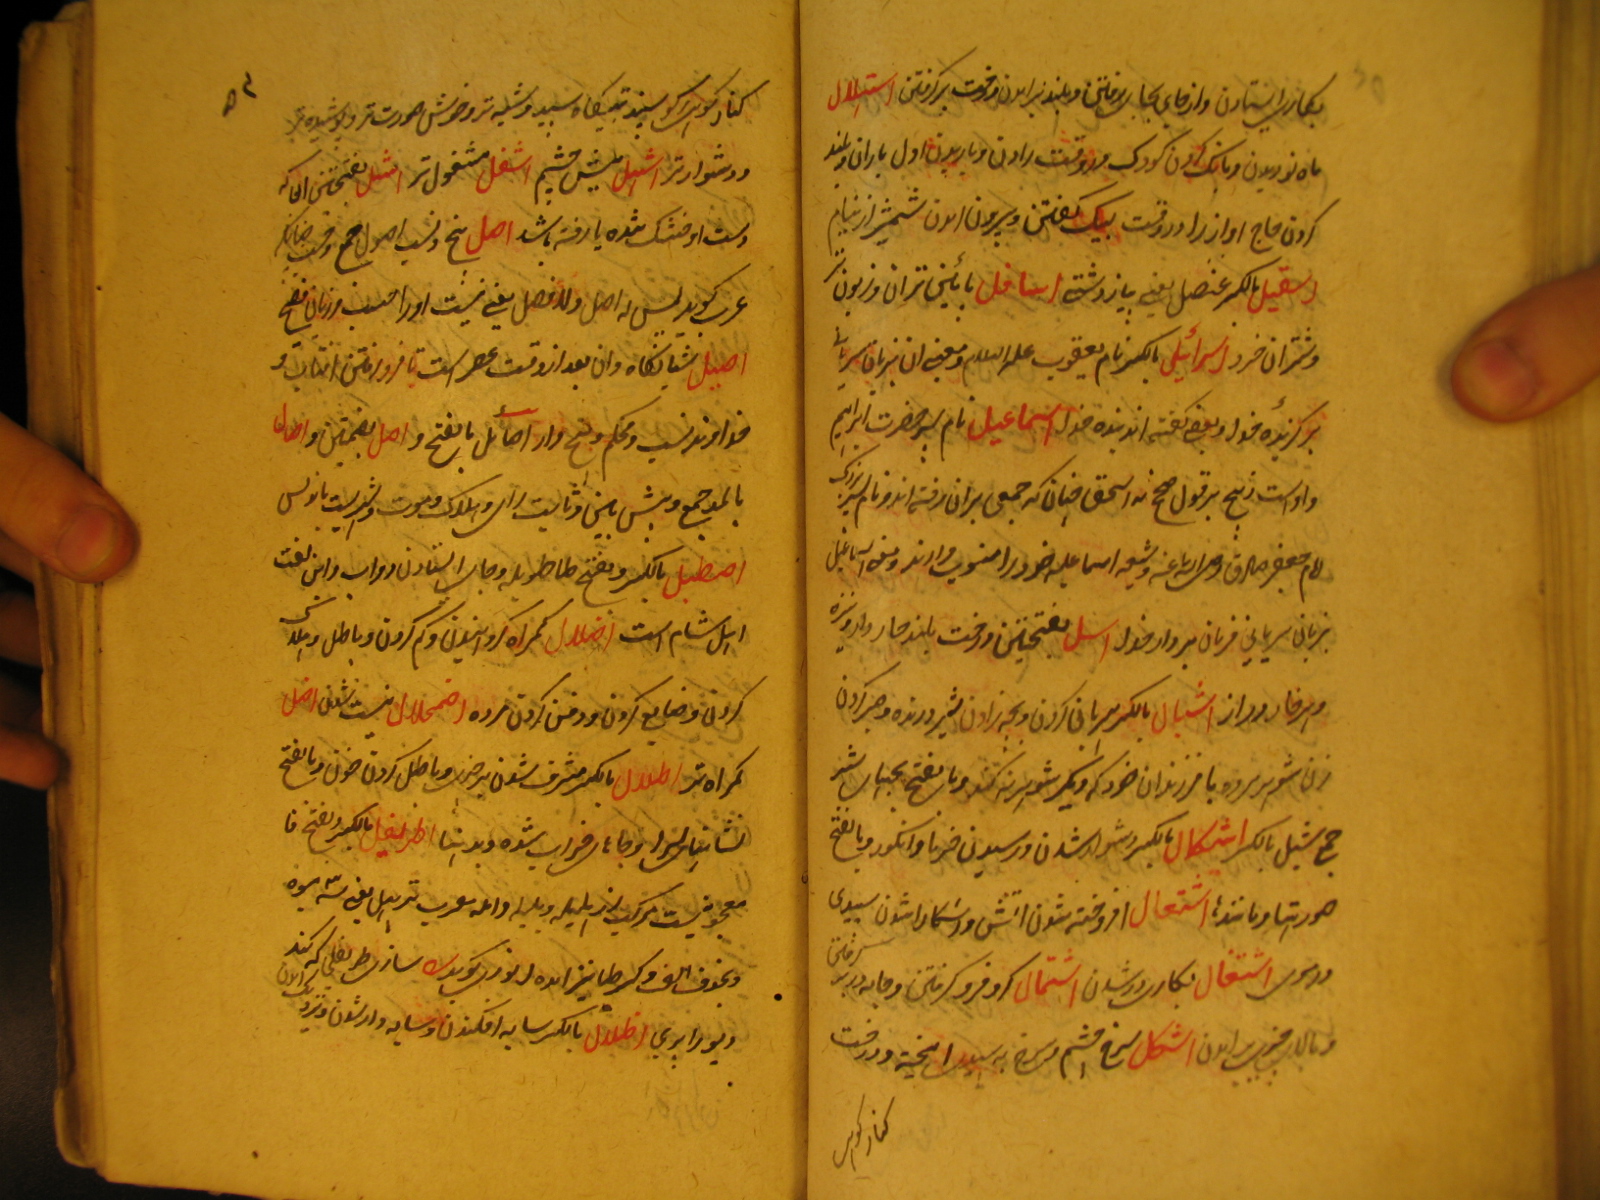 بکاری ایستادن و از جای بجای رفتن و بلند برآمدن و رخت برگرفتن استهلال
ماه نو دیدن و بانک کردن کودک در وقت زادن و باریدن اول باران و بلند
کردن حاج آواز را در وقت لبیک گفتن و بیرون آمدن شمشیر از نیام
اسقیل بالکسر عنصل یعنی پیاز دشتی اسافل پائین تران و زبون تر
و شتران خرد اسرائیل بالکسر نام یعقوب علیه السلام و معنی آن بزبان سریانی
برگزیده خدا و بعضی گفته اند بنده خدا اسماعیل نام پسر حضرت ابراهیم
و اوست ذبیح بر قول صحیح نه اسحق چنانکه جمعی بران رفته اند و نام پسر بزرگ
امام جعفر صادق رضی الله عنه و شیعه اسماعیلیه خود را منسوب دارند و معنی اسماعیل
بزبان سریانی فرمان بردار خدا اسل بفتحتین درخت بلند خار دار و نیزه
و هر خار دراز اشبال بالکسر مهربانی کردن و بچه زادن شیر درنده و صبر کردن
زن شوهر مرده با فرزندان خود که دیگر شوهر نکند و بالفتح بچهای شیر
جمع شبل بالکسر اشکال بالکسر دشوار شدن و رسیدن خرما و انگور و بالفتح
صورتها و مانندها اشتعال افروخته شدن آتش و آشکارا شدن سپیدی
در موی اشتغال بکاری در شدن اشتمال گرد فرو گرفتن و جامه در سر
اشکل سرخ چشم و سرخ به سپیدی آمیخته و درخت
کنار کوهی
کنار کوهی گوسپند تهیگاه سپید و شبیه تر و خوش صورت تر و پوشیده تر
و دشوارتر اشهل میش چشم اشغل مشغول تر اشل بفتحتین آنکه
دست او خشک شده یا رفته باشد اصل بیخ و نسب اصول جمع و چنانکه
عرب گوید لیس له اصل و لا فصل یعنی نیست او را حسب و زبان فصیح
اصیل شبانگاه و آن بعد از وقت عصر است تا فرو رفتن آفتاب و
خداوند نسب و محکم و بیخ دار اصائل بالفتح و اصل بضمتین و آصال
بالمد جمع و شهریست باندلس
اصطبل بالکسر و بفتح طا طویله و جای ایستادن دواب و این لغت
اهل شام است اضلال گمراه گردانیدن و گم کردن و باطل و هلاک
کردن و ضایع کردن و دفن کردن مرده اضمحلال نیست شدن اضل
گمراه تر اطلال بالکسر مشرف شدن بر چیزی و باطل کردن خون و بالفتح
نشانهای سرا و جاهای خراب شده و بدنها اطریفل بالکسر و بفتح فا
معجونیست مرکب از هلیله و بلیله و آمله معرب تری پهل یعنی سه میوه
و بحذف الف و کسر طا نیز آمده انوری گوید سازی طریفلی که کند
دیو را پری اظلال بالکسر سایه افکندن و سایه دار شدن و نزدیک آمدن